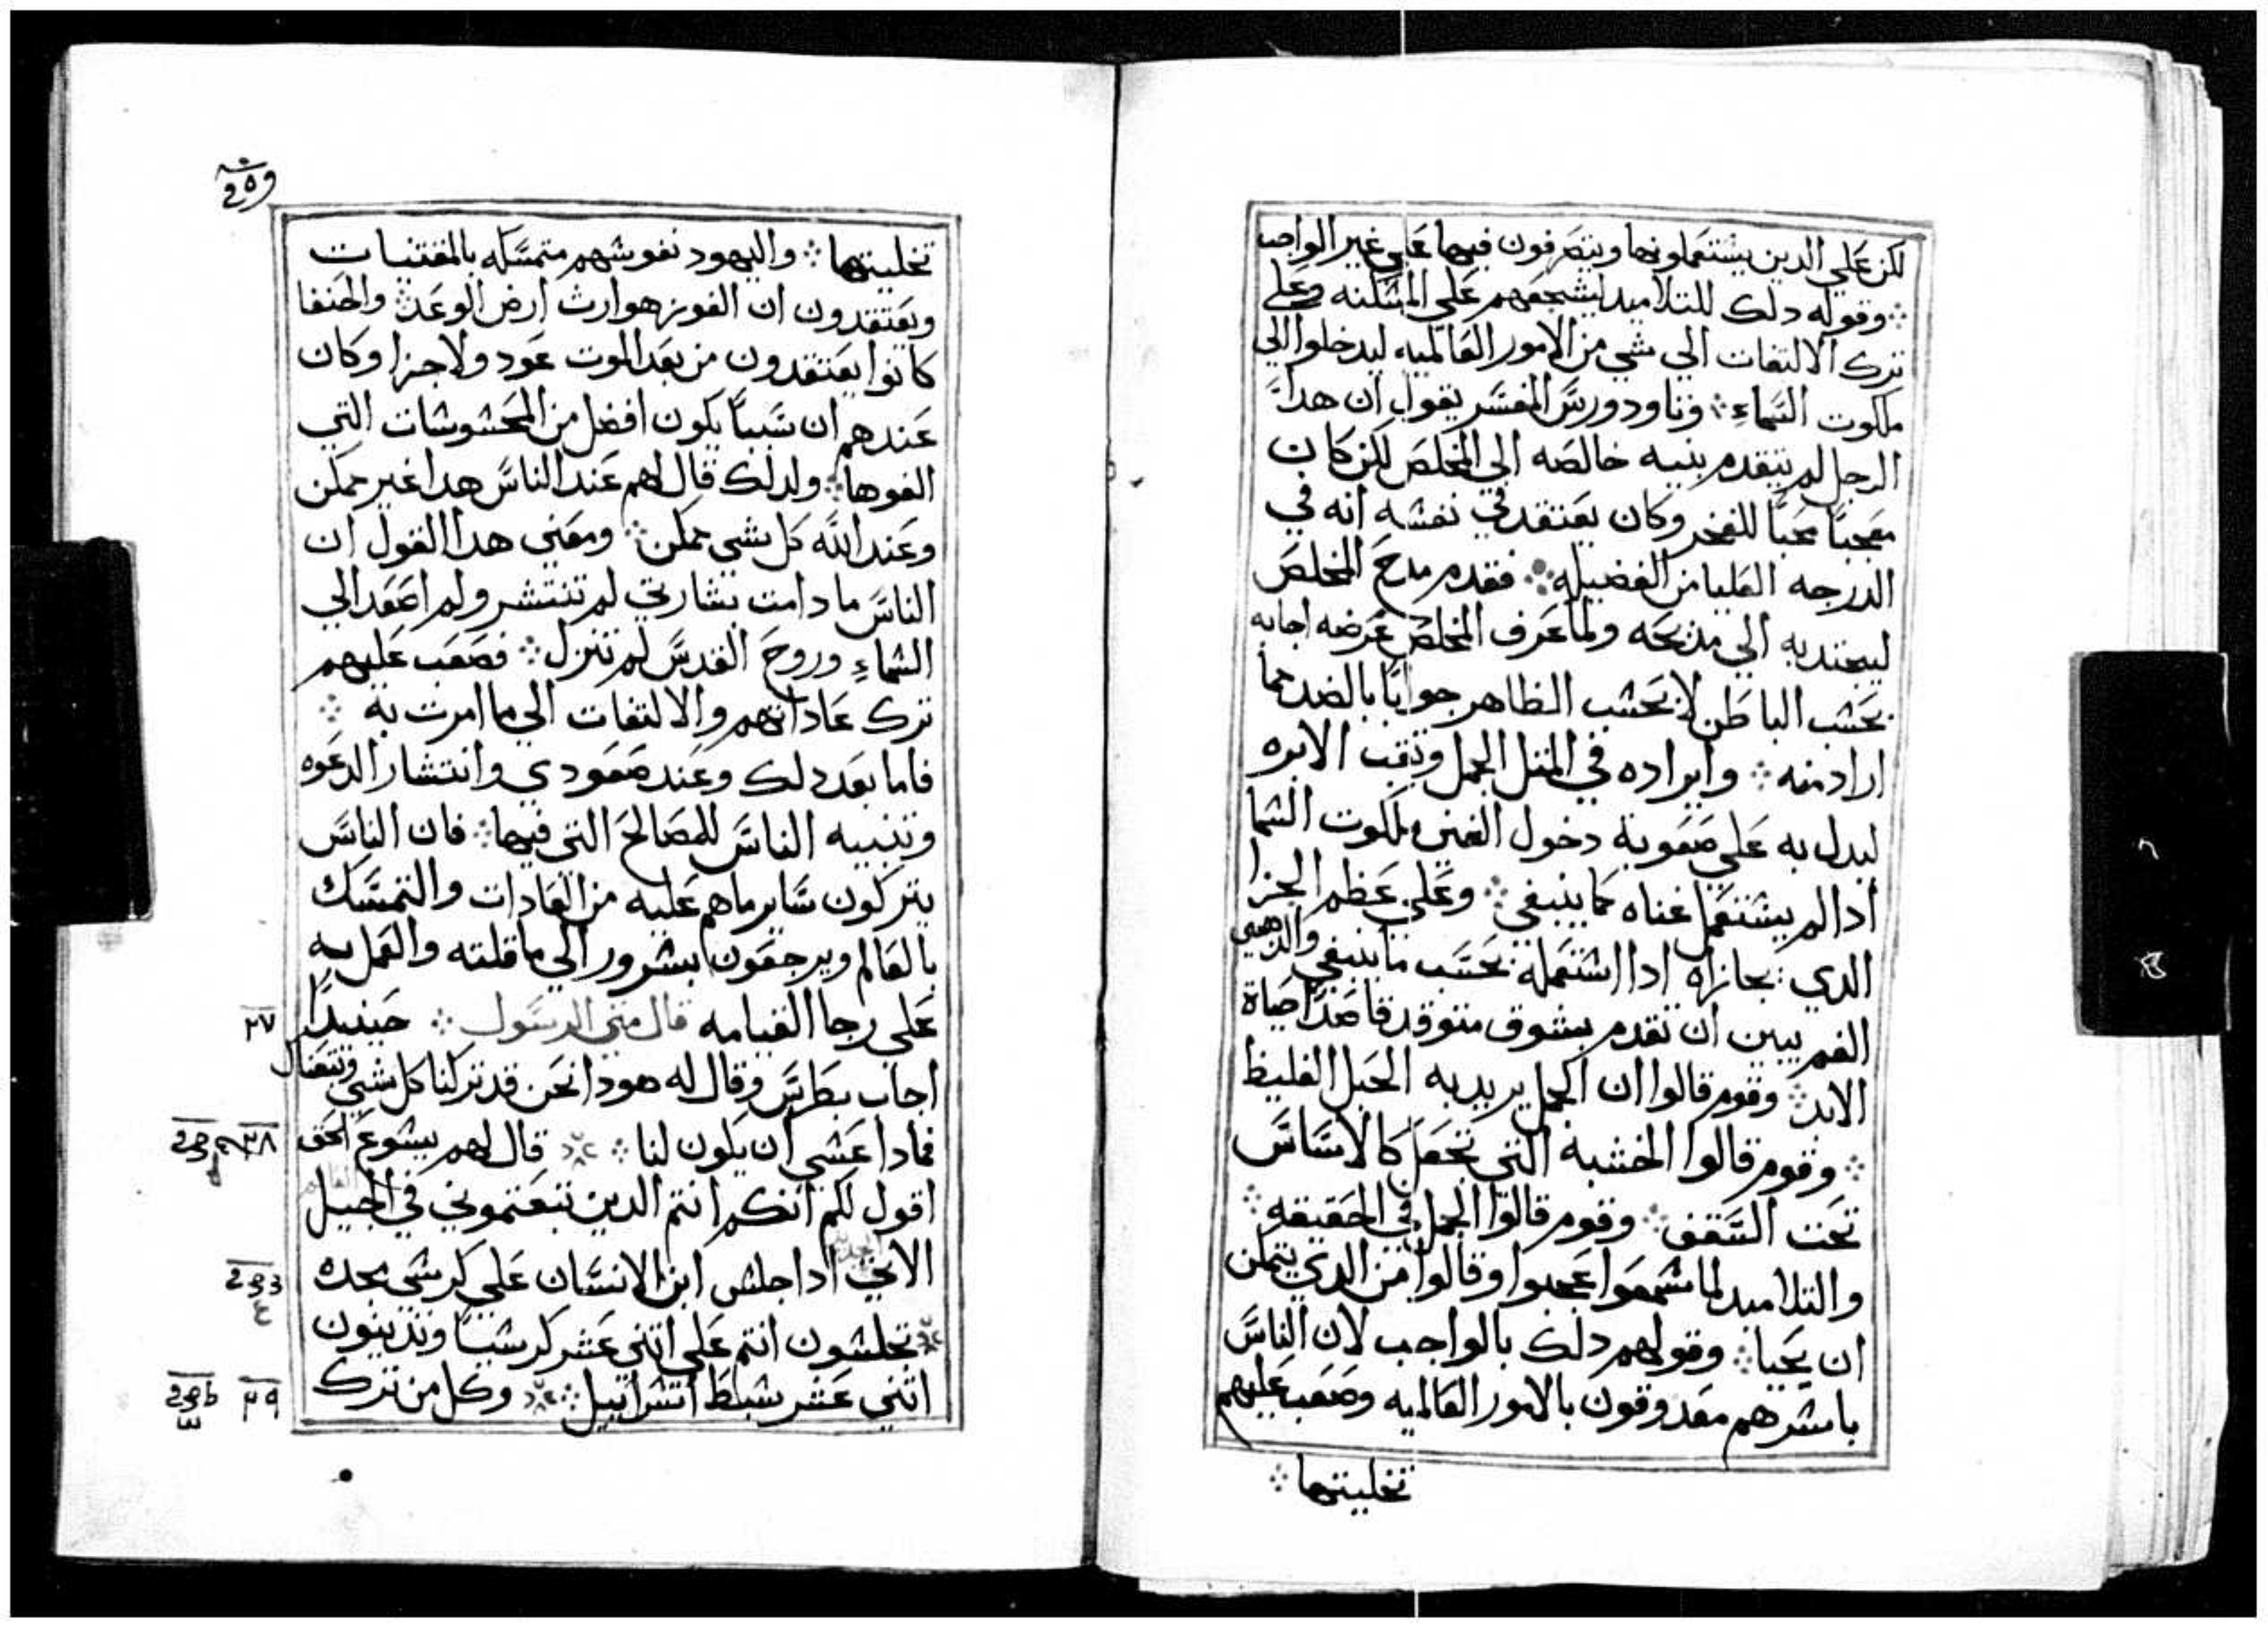 لكن علي الدين يشتعملونها ويتصرفون فيها علي غير الواجب
وقوله دلك للتلاميد ليشجعهم علي المسكنه وعلي
ترك الالتفات الي شي من الامور العالميه ليدخلوا الي
ملكوت السماء وتاودورس المفسر يقول ان هدا
الرجل لم يتقدم بنيه خالصه الي المخلص لكن كان
معجبا محبا للفخر وكان يعتقد في نفسه انه في
الدرجه العليا من الفضيله فقدم مدح المخلص
ليجتدبه الي مديحه ولما عرف المخلص غرضه اجابه
بحشب الباطن لا بحشب الظاهر جوابا بالضد مما
اراد منه وايراده في المتل الجمل وتقب الابره
ليدل به علي صعوبة دخول الغني ملكوت السما
ادا لم يشتعمل غناه كما ينبغي وعلي عظم الجزا
الدي يجازاه ادا اشتعمله بحسب ما ينبغي والدهبي
الفم يبين ان تقدم بشوق متوقد قاصدا حياة
الابد وقوم قالوا ان الجمل يريد به الحبل الغليظ
وقوم قالوا الخشبة التي تجعل كالاساس
تحت السقف وقوم قالوا الجمل في الحقيقه
والتلاميد لما سمعوا عجبوا وقالوا من الدي يتمكن
ان يحيا وقولهم دلك بالواجب لان الناس
باسرهم معدوقون بالامور العالميه وصعب عليهم
تخليتها
تخليتها واليهود نفوسهم متمسكه بالمقتنيات
ويعتقدون ان الفوز هو ارث ارض الوعد والحنفا
كانوا يعتقدون من بعد الموت عود ولا جزا وكان
عندهم ان شييا يكون افضل من المحشوشات التي
الفوها ولدلك قال لهم عند الناس هدا غير ممكن
وعند الله كل شي ممكن ومعني هدا القول ان
الناس ما دامت بشارتي لم تنتشر ولم اصعد الي
السماء وروح القدس لم تنزل فصعب عليهم
ترك عاداتهم والالتفات الي ما امرت به
فاما بعد دلك وعند صعودي وانتشار الدعوه
وتنبيه الناس للمصالح التي فيها فان الناس
يتركون ساير ما هم عليه من العادات والتمسك
بالعالم ويرجعون بسرور الي ما قلته والعمل به
علي رجا القيامه قال متي الرسول حينيدا
٢٧
اجاب بطرس وقال له هودا نحن قد تركنا كل شي وتبعناك
فمادا عشي ان يكون لنا قال لهم يشوع الحق
٢٨
اقول لكم انكم انتم الدين تبعتموني في الجيل
الاتي ادا جلس ابن الانسان علي كرشي مجده
تجلشون انتم علي اتني عشر كرشيا وتدينون
اتني عشر شبط اسراييل وكل من ترك
٢٩